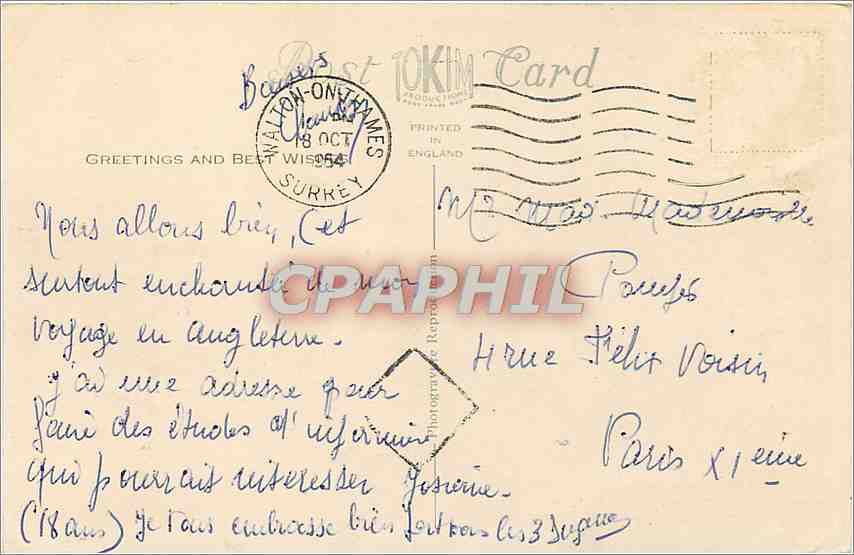 Post Card
TOKIM
PRODUCTIONS
PRINTED
IN
ENGLAND
Photogravure Reproduction
WALTON-ON-THAMES
18 OCT
1954
SURREY
GREETINGS AND BEST WISHES
CPAPHIL
Baisers
Nous allons bien, (et
surtout enchanté de mon
voyage en angleterre.
J'ai une adresse pour
faire des études d'infirmière
qui pourrait intéresser
(18 ans) Je vous embrasse bien fort tous les 3
Mr Mad. Mademoiselle
4 rue Félix Voisin
Paris XIeme